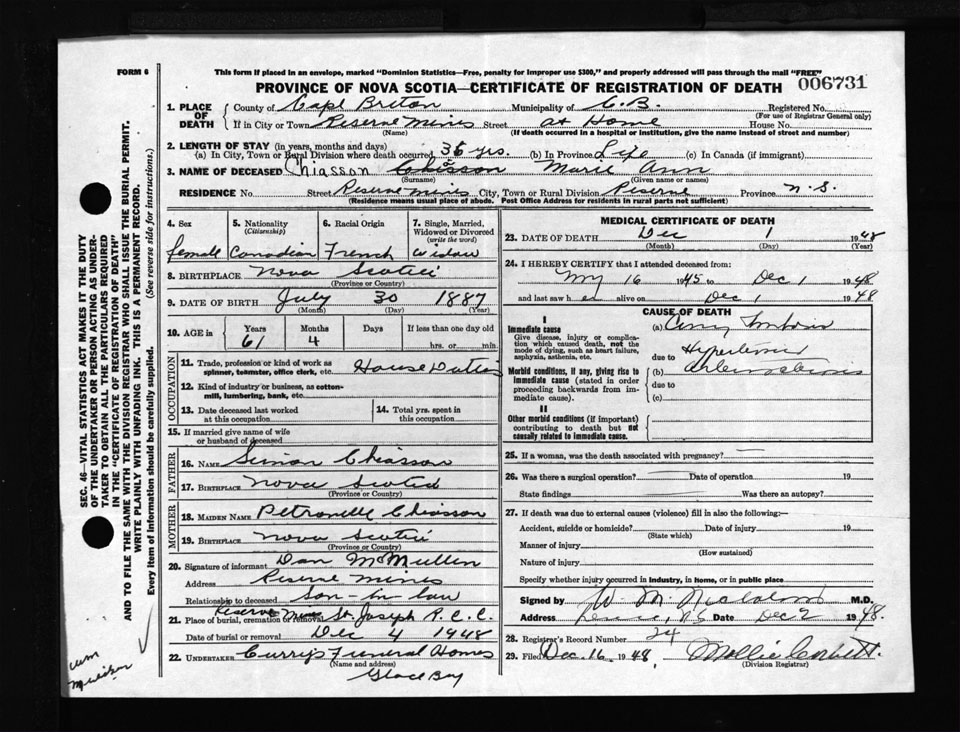 FORM 6
This form if placed in an envelope, marked "Dominion Statistics—Free, penalty for improper use $300," and properly addressed will pass through the mail "FREE"
PROVINCE OF NOVA SCOTIA—CERTIFICATE OF REGISTRATION OF DEATH
006731
1. PLACE OF DEATH
County of Cape Breton Municipality of C.B. Registered No.
(For use of Registrar General only)
If in City or Town Reserve Mines Street at Home House No.
(Name) (If death occurred in a hospital or institution, give the name instead of street and number)
2. LENGTH OF STAY (in years, months and days)
(a) In City, Town or Rural Division where death occurred 36 yrs. (b) In Province Life (c) In Canada (if immigrant)
3. NAME OF DECEASED Chiasson Chisson Marie Ann
(Surname) (Given name or names)
RESIDENCE No. Street Reserve Mines City, Town or Rural Division Reserve Province N.S.
(Residence means usual place of abode. Post Office Address for residents in rural parts not sufficient)
4. Sex
female
5. Nationality
(Citizenship)
Canadian
6. Racial Origin
French
7. Single, Married, Widowed or Divorced
(write the word)
widow
8. BIRTHPLACE Nova Scotia
(Province or Country)
9. DATE OF BIRTH July 30 1887
(Month) (Day) (Year)
10. AGE in Years Months Days If less than one day old
61 4 hrs. or min.
OCCUPATION
11. Trade, profession or kind of work as spinner, teamster, office clerk, etc. House Duties
12. Kind of industry or business, as cotton-mill, lumbering, bank, etc.
13. Date deceased last worked at this occupation
14. Total yrs. spent in this occupation
15. If married give name of wife or husband of deceased
FATHER
16. NAME Simon Chiasson
17. BIRTHPLACE Nova Scotia
(Province or Country)
MOTHER
18. MAIDEN NAME Petronelle Chiasson
19. BIRTHPLACE Nova Scotia
(Province or Country)
20. Signature of informant Dan McMullin
Address Reserve Mines
Relationship to deceased Son-in-law
21. Place of burial, cremation or removal Reserve Mines St. Joseph R.C.C.
Date of burial or removal Dec 4 1948
22. UNDERTAKER Curry's Funeral Homes
(Name and address)
Glace Bay
MEDICAL CERTIFICATE OF DEATH
23. DATE OF DEATH Dec 1 1948
(Month) (Day) (Year)
24. I HEREBY CERTIFY that I attended deceased from:
My 16 1945 to Dec 1 1948
and last saw her alive on Dec 1 1948
CAUSE OF DEATH
I
Immediate cause
Give disease, injury or complication which caused death, not the mode of dying, such as heart failure, asphyxia, asthenia, etc.
(a)
due to
Morbid conditions, if any, giving rise to immediate cause (stated in order proceeding backwards from immediate cause).
(b)
due to
(c)
II
Other morbid conditions (if important) contributing to death but not causally related to immediate cause.
25. If a woman, was the death associated with pregnancy?
26. Was there a surgical operation? Date of operation 19
State findings Was there an autopsy?
27. If death was due to external causes (violence) fill in also the following:—
Accident, suicide or homicide? Date of injury 19
(State which)
Manner of injury
(How sustained)
Nature of injury
Specify whether injury occurred in industry, in home, or in public place
Signed by W. M. M.D.
Address N.S Date Dec 2 1948.
28. Registrar's Record Number 24
29. Filed Dec. 16 1948, Mollie Corbett.
(Division Registrar)
SEC. 46—VITAL STATISTICS ACT MAKES IT THE DUTY
OF THE UNDERTAKER OR PERSON ACTING AS UNDERTAKER TO OBTAIN ALL THE PARTICULARS REQUIRED
IN THE "CERTIFICATE OF REGISTRATION OF DEATH"
AND TO FILE THE SAME WITH THE DIVISION REGISTRAR WHO SHALL ISSUE THE BURIAL PERMIT.
WRITE PLAINLY WITH UNFADING INK. THIS IS A PERMANENT RECORD.
Every item of information should be carefully supplied. (See reverse side for instructions.)